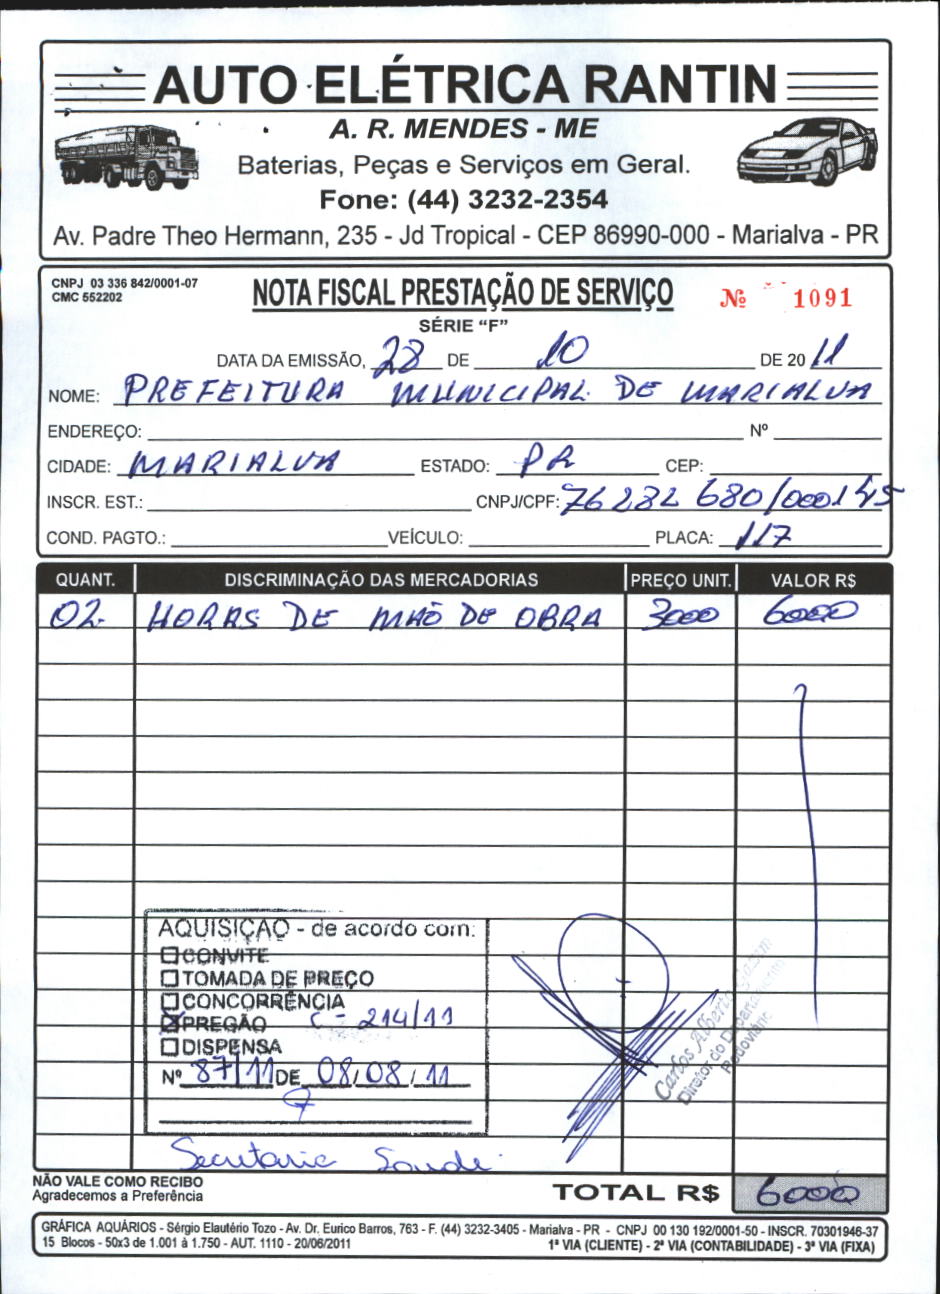 AUTO ELÉTRICA RANTIN
A. R. MENDES - ME
Baterias, Peças e Serviços em Geral.
Fone: (44) 3232-2354
Av. Padre Theo Hermann, 235 - Jd Tropical - CEP 86990-000 - Marialva - PR
CNPJ 03 336 842/0001-07
CMC 552202
NOTA FISCAL PRESTAÇÃO DE SERVIÇO Nº 1091
SÉRIE “F”
DATA DA EMISSÃO, 28 DE 10 DE 2011
NOME: PREFEITURA MUNICIPAL DE MARIALVA
ENDEREÇO: Nº
CIDADE: MARIALVA ESTADO: PR CEP:
INSCR. EST.: CNPJ/CPF: 76 282 680/0001 45
COND. PAGTO.: VEÍCULO: PLACA: 117
QUANT. DISCRIMINAÇÃO DAS MERCADORIAS PREÇO UNIT. VALOR R$
02 HORAS DE MÃO DE OBRA 3000 6000
AQUISIÇÃO - de acordo com:
CONVITE
TOMADA DE PREÇO
CONCORRÊNCIA
PREGÃO C - 214/11
DISPENSA
Nº 87/11 DE 08/08/11
Carlos Alberto
Diretor do Departamento
Rodoviário
Secretaria Saude
NÃO VALE COMO RECIBO
Agradecemos a Preferência
TOTAL R$ 6000
GRÁFICA AQUÁRIOS - Sérgio Elautério Tozo - Av. Dr. Eurico Barros, 763 - F. (44) 3232-3405 - Marialva - PR - CNPJ 00 130 192/0001-50 - INSCR. 70301946-37
15 Blocos - 50x3 de 1.001 à 1.750 - AUT. 1110 - 20/06/2011 1ª VIA (CLIENTE) - 2ª VIA (CONTABILIDADE) - 3ª VIA (FIXA)